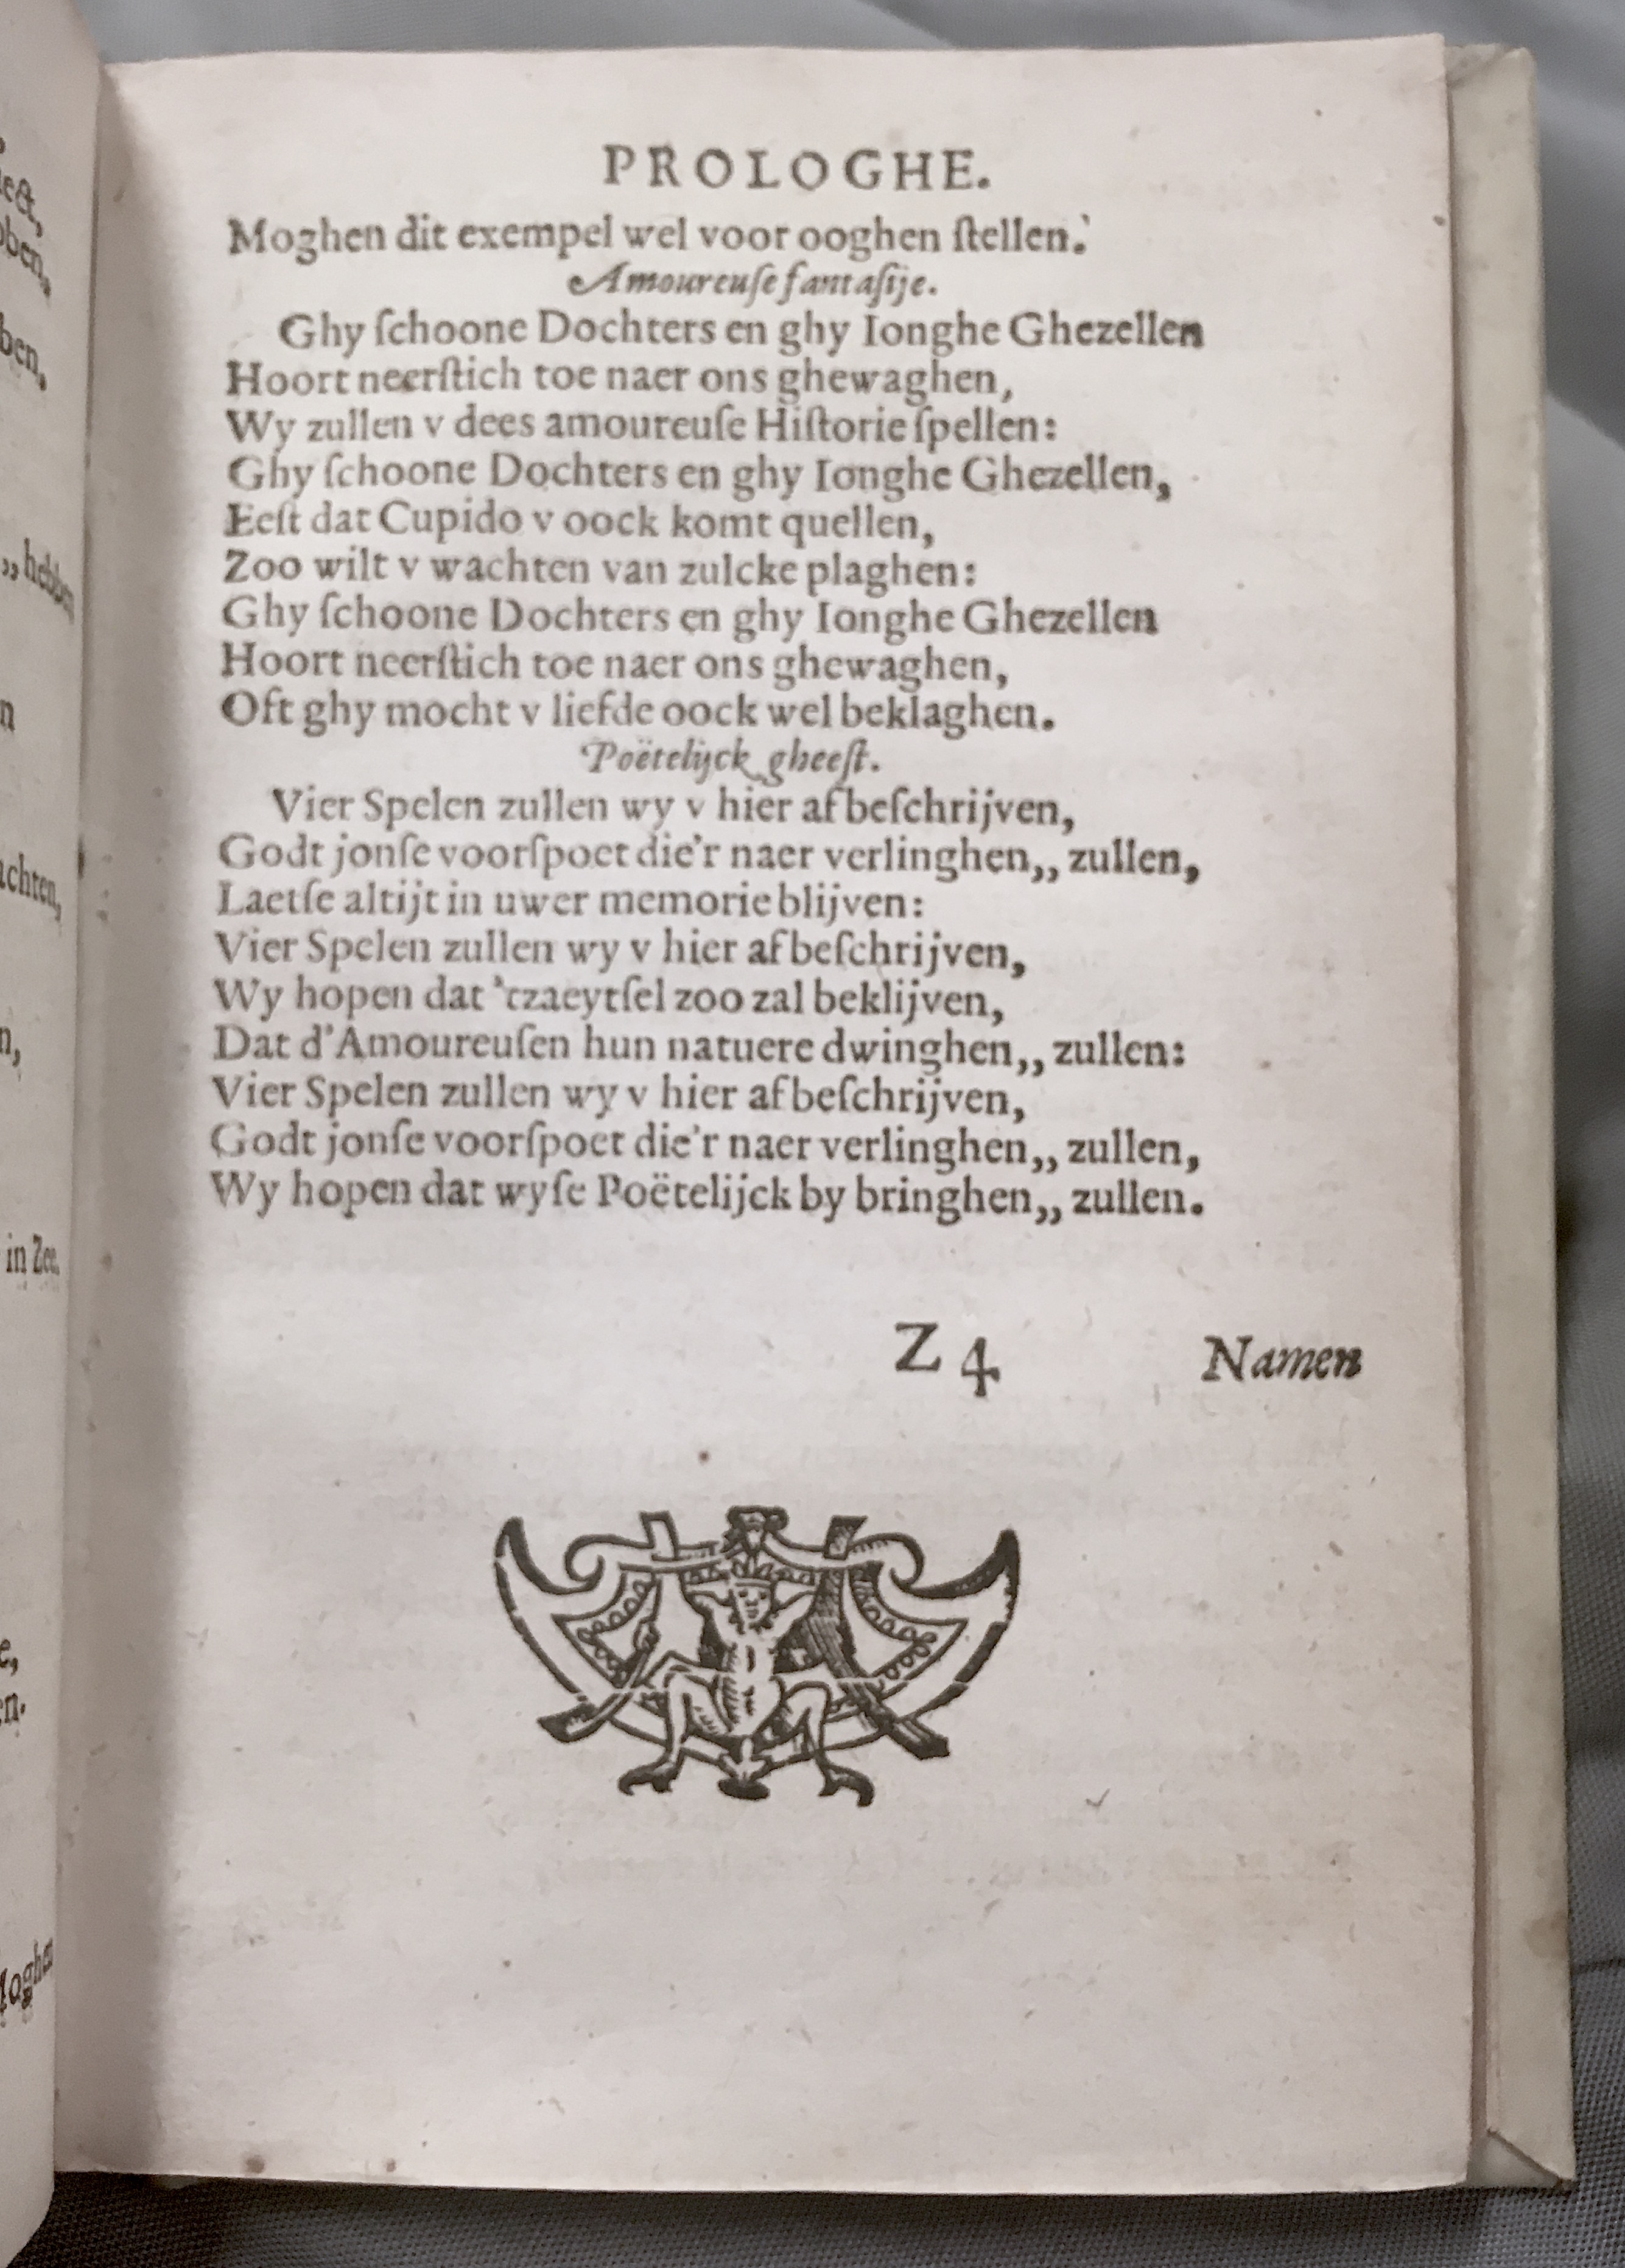 PROLOGHE.
Moghen dit exempel wel voor ooghen ſtellen.
Amoureuſe fantaſije.
Ghy ſchoone Dochters en ghy Ionghe Ghezellen
Hoort neerſtich toe naer ons ghewaghen,
Wy zullen v dees amoureuſe Hiſtorie ſpellen:
Ghy ſchoone Dochters en ghy Ionghe Ghezellen,
Eeſt dat Cupido v oock komt quellen,
Zoo wilt v wachten van zulcke plaghen:
Ghy ſchoone Dochters en ghy Ionghe Ghezellen
Hoort neerſtich toe naer ons ghewaghen,
Oft ghy mocht v liefde oock wel beklaghen.
Poëtelijck gheeſt.
Vier Spelen zullen wy v hier af beſchrijven,
Godt jonſe voorſpoet die'r naer verlinghen,, zullen,
Laetſe altijt in uwer memorie blijven:
Vier Spelen zullen wy v hier af beſchrijven,
Wy hopen dat 'tzaeytſel zoo zal beklijven,
Dat d'Amoureuſen hun natuere dwinghen,, zullen:
Vier Spelen zullen wy v hier af beſchrijven,
Godt jonſe voorſpoet die'r naer verlinghen,, zullen,
Wy hopen dat wyſe Poëtelijck by bringhen,, zullen.
Z 4 Namen
,, hebben
in Zee.